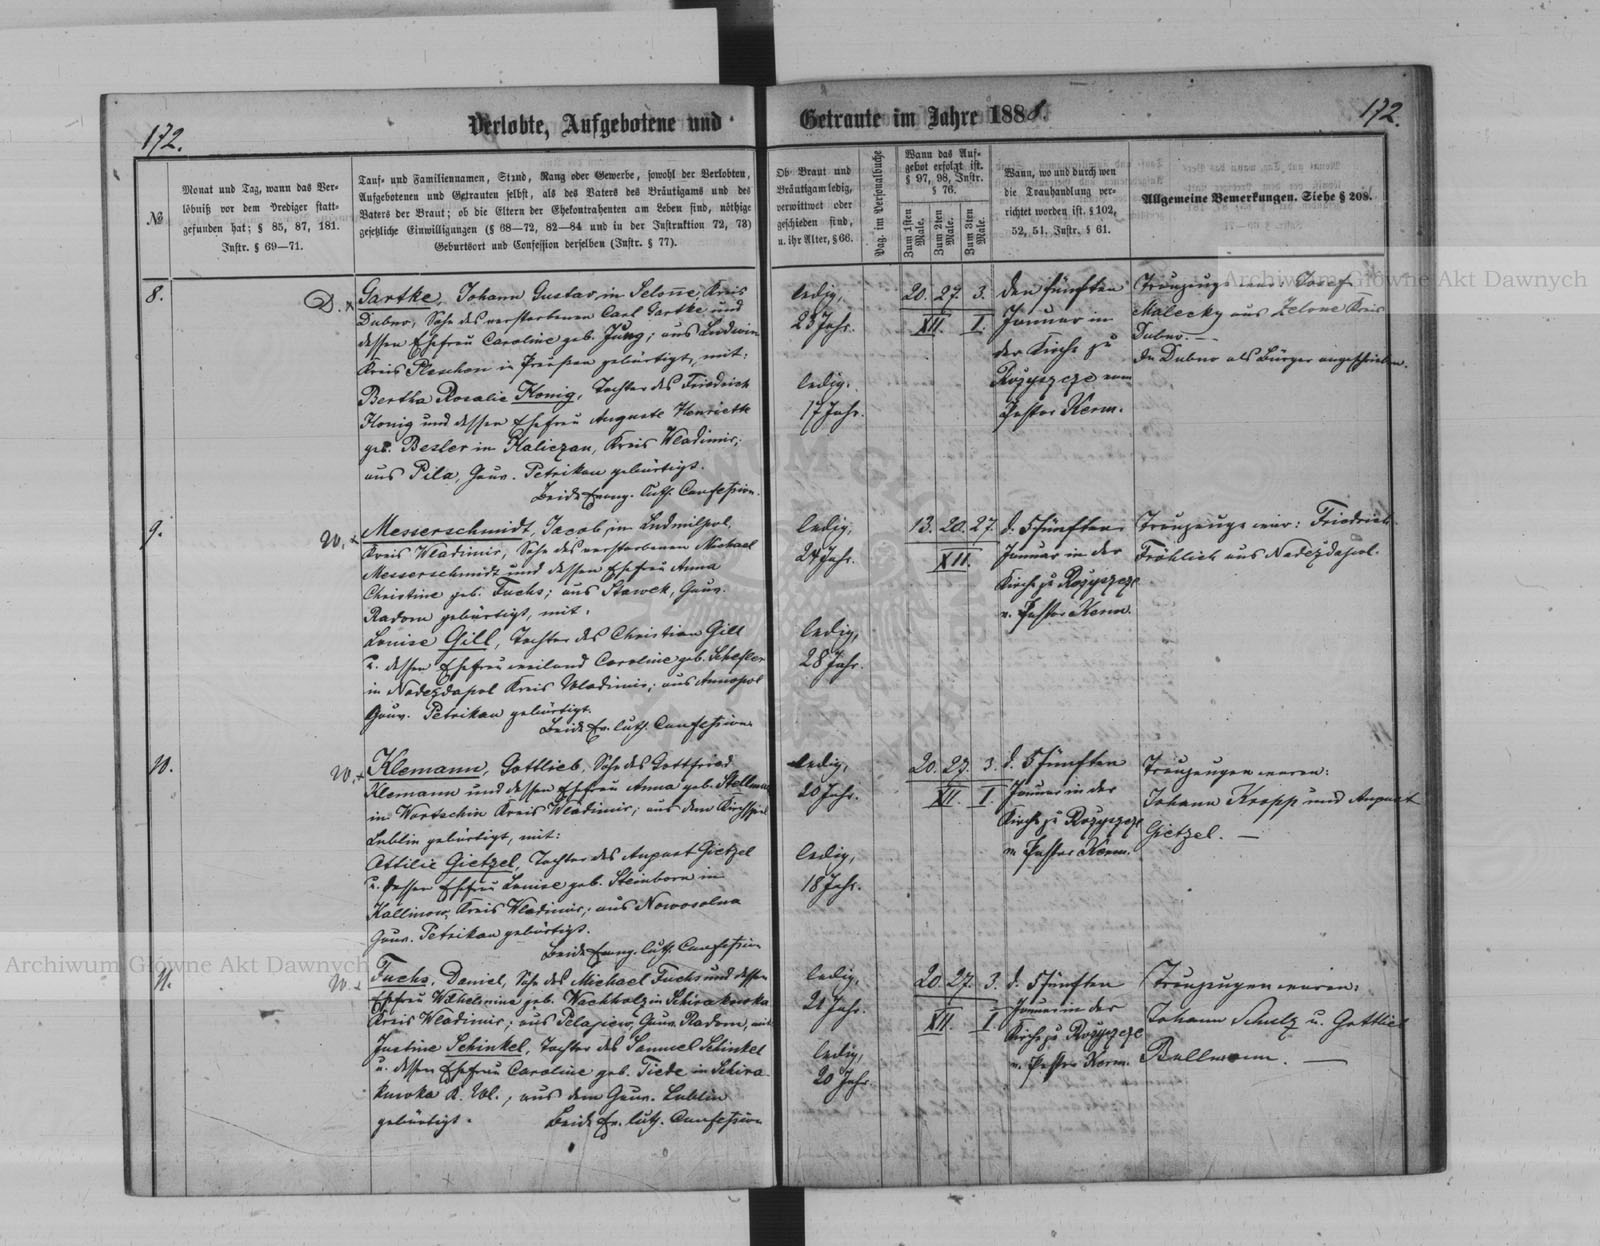 172.
Verlobte, Aufgebotene und
Getraute im Jahre 1888.
172.
№
Monat und Tag, wann das Ver-
löbniß vor dem Prediger statt-
gefunden hat; § 85, 87, 181.
Instr. § 69—71.
Tauf- und Familiennamen, Stand, Rang oder Gewerbe, sowohl der Verlobten,
Aufgebotenen und Getrauten selbst, als des Vaters des Bräutigams und des
Vaters der Braut; ob die Eltern der Ehekontrahenten am Leben sind, nöthige
gesetzliche Einwilligungen (§ 68—72, 82—84 und in der Instruktion 72, 73)
Geburtsort und Confession derselben (Instr. § 77).
Ob Braut und
Bräutigam ledig,
verwittwet oder
geschieden sind,
u. ihr Alter, § 66.
Pag. im Personalbuche
Wann das Auf-
gebot erfolgt ist.
§ 97, 98, Instr.
§ 76.
Zum 1sten Male.
Zum 2ten Male.
Zum 3ten Male.
Wann, wo und durch wen
die Trauhandlung ver-
richtet worden ist. § 102,
52, 51. Instr. § 61.
Allgemeine Bemerkungen. Siehe § 208.
8.
D. x
Gartke, Johann Gustav in Selonne, Kreis
Dubno, Sohn des verstorbenen Carl Gartke und
dessen Ehefrau Caroline geb. Jung; aus Ludwin
Kreis Pleschen in Preußen gebürtigt, mit:
Bertha Rosalie König, Tochter des Friedrich
König und dessen Ehefrau Auguste Henriette
geb. Besler in Kaliczan, Kreis Wladimir;
aus Pila, Gouv. Petrikau gebürtigt.
Beide Evang. luth. Confession.
ledig,
23 Jahr.
ledig.
17 Jahr.
20. 27. 3.
XII. I.
den fünften
Januar in
der Kirche zu
Rożyszcze vom
Pastor Kerm.
Trauzeuge war: Josef
Malecky aus Zelone Kreis
Dubno. —
In Dubno als Bürger angeschrieben.
9.
W. x
Messerschmidt, Jacob, in Ludmilpol,
Kreis Wladimir, Sohn des verstorbenen Michael
Messerschmidt und dessen Ehefrau Anna
Christine geb. Fuchs; aus Stawek, Gouv.
Radom gebürtigt, mit:
Louise Gill, Tochter des Christian Gill
u. dessen Ehefrau weiland Caroline geb. Schefler
in Nadezdapol Kreis Wladimir; aus Annopol
Gouv. Petrikau gebürtigt.
Beide Ev. luth. Confession.
ledig,
24 Jahr.
ledig,
28 Jahr.
13. 20. 27.
XII.
d. 5 fünften
Januar in der
Kirche zu Rożyszcze
v. Pastor Kerm.
Trauzeuge war: Friedrich
Fröhlich aus Nadezdapol.
10.
W. x
Klemann, Gottlieb, Sohn des Gottfried
Klemann und dessen Ehefrau Anna geb. Stellmar
in Wortschin Kreis Wladimir; aus dem Kirchspiel
Lublin gebürtigt, mit:
Ottilie Gietzel, Tochter des August Gietzel
u. dessen Ehefrau Louise geb. Steinborn in
Kallinow, Kreis Wladimir; aus Nowosolna
Gouv. Petrikau gebürtigt.
Beide Evang. luth. Confession
ledig,
20 Jahr.
ledig,
18 Jahr.
20. 27. 3.
XII. I.
d. 5 fünften
Januar in der
Kirche zu Rożyszcze
v. Pastor Kerm.
Trauzeugen waren:
Johann Kropp und August
Gietzel. —
11.
W. x
Fuchs, Daniel, Sohn des Michael Fuchs und dessen
Ehefrau Wilhelmine geb. Wachholz in Schirakowka
Kreis Wladimir; aus Pelagiew, Gouv. Radom, mit
Justine Schinkel, Tochter des Samuel Schinkel
u. dessen Ehefrau Caroline geb. Tiede in Schira-
kowka K. Wl.; aus dem Gouv. Lublin
gebürtigt.
Beide Ev. luth. Confession
ledig,
21 Jahr.
ledig,
20 Jahr.
20. 27. 3.
XII. I.
d. 5 fünften
Januar in der
Kirche zu Rożyszcze
v. Pastor Kerm.
Trauzeugen waren:
Johann Schulz u. Gottlieb
Bullmann. —
Archiwum Główne Akt Dawnych
Archiwum Główne Akt Dawnych